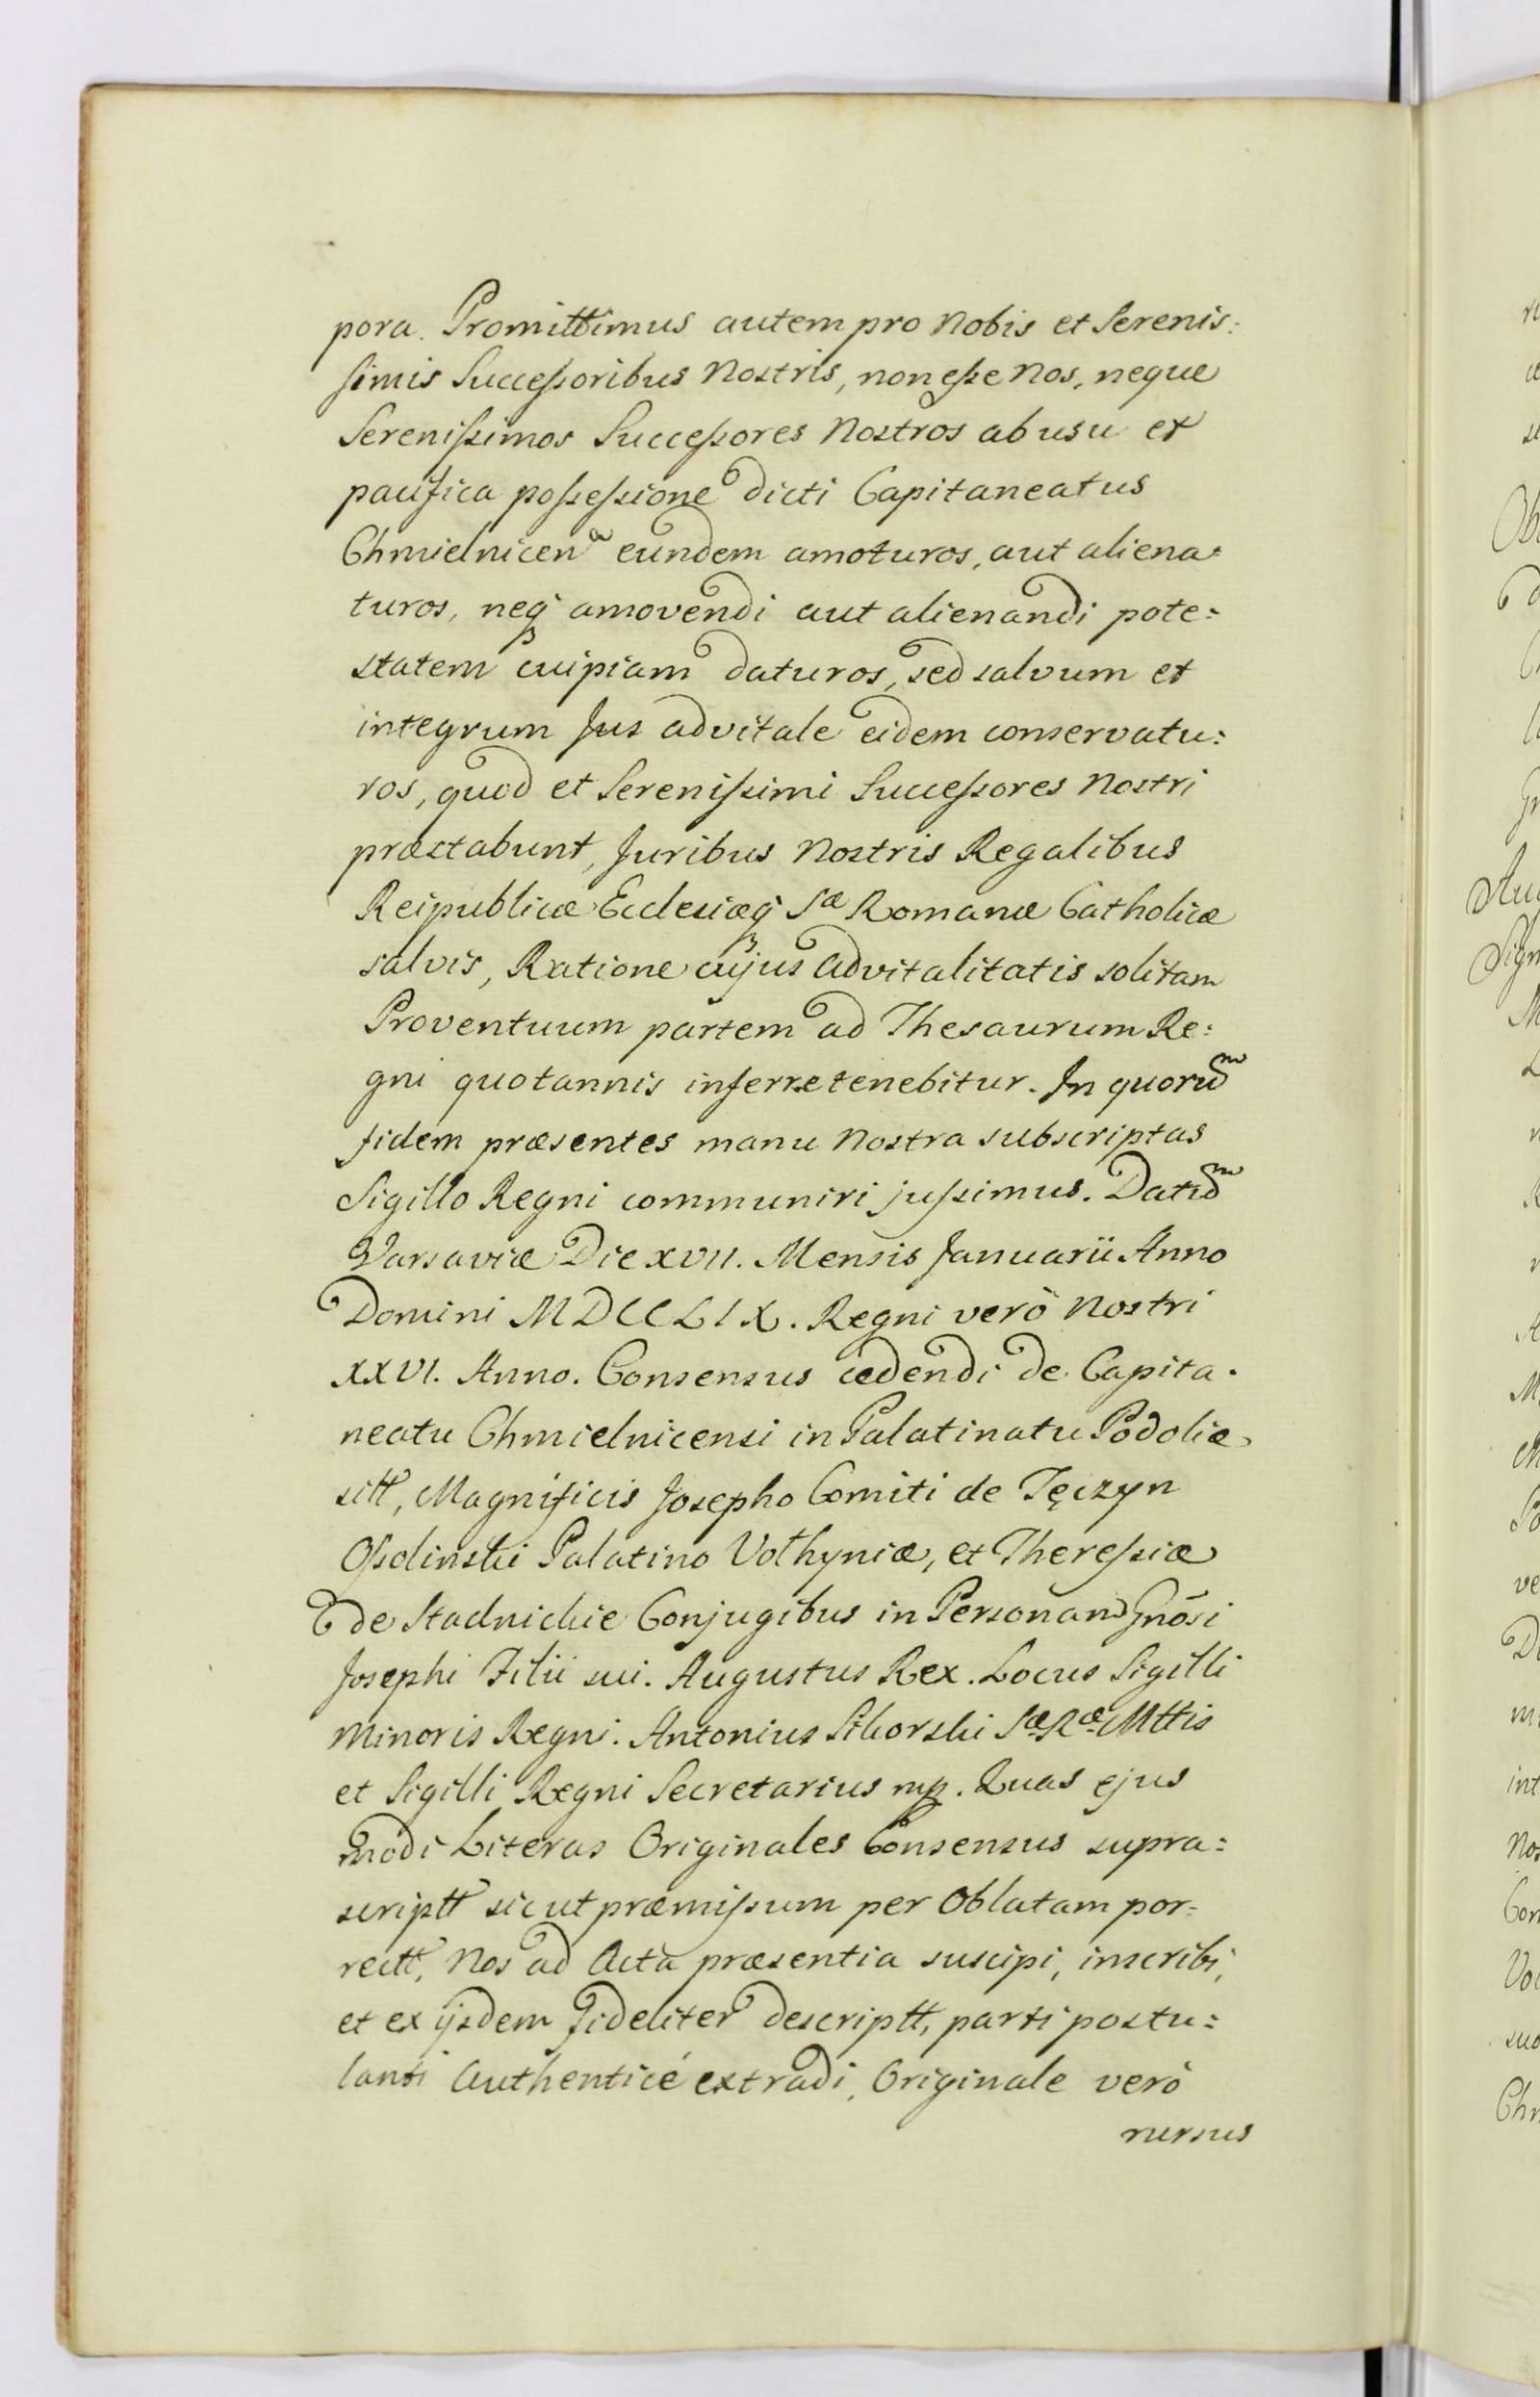 pora. Promittimus autem pro Nobis et Serenis:
simis Successoribus Nostris, non esse Nos, neque
Serenissimos Successores Nostros ab usu et
pacifica possessione dicti Capitaneatus
Chmielnicen eundem amoturos, aut aliena:
turos, neq amovendi aut alienandi pote:
statem cuipiam daturos, sed salvum et
integrum Jus advitale eidem conservatu:
ros, quod et Serenissimi Successores Nostri
præstabunt, Juribus Nostris Regalibus
Reipublicæ Ecclesiæq Sæ Romanæ Catholicæ
salvis, Ratione cujus Advitalitatis solitam
Proventuum partem ad Thesaurum Re:
gni quotannis inferre tenebitur. In quorum
fidem præsentes manu Nostra subscriptas
Sigillo Regni communiri jussimus. Datum
Varsaviæ Die XVII. Mensis Januarii Anno
Domini MDCCLIX. Regni verò Nostri
XXVI. Anno. Consensus cedendi de Capita:
neatu Chmielnicensi in Palatinatu Podoliæ
sitt, Magnificis Josepho Comiti de Tęczyn
Ossolinski Palatino Volhyniæ, et Theressiæ
de Stadnickie Conjugibus in Personam Gnōsi
Josephi Filii sui. Augustus Rex. Locus Sigilli
Minoris Regni. Antonius Sikorski Sæ Ræ Mttis
et Sigilli Regni Secretarius mp. Quas ejus
modi Literas Originales Consensus supra:
scriptt sicut præmissum per Oblatam por:
rectt, Nos ad Acta præsentia suscipi, inscribi,
et ex ijsdem fideliter descriptt, parti postu:
lanti Authenticé extradi, Originale verò
rursus